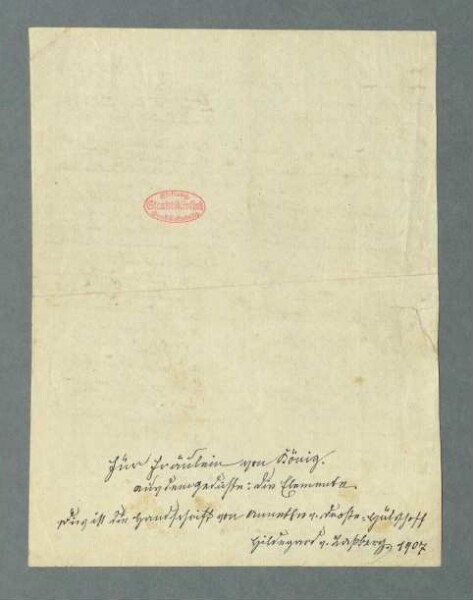 Stiftung
Staatsbibliothek
Für Fräulein von König.
aus dem Gedichte: die Elemente
dies ist die Handschrift von Annette v. Droste-Hülshoff
Hildegard v. Laßberg, 1907